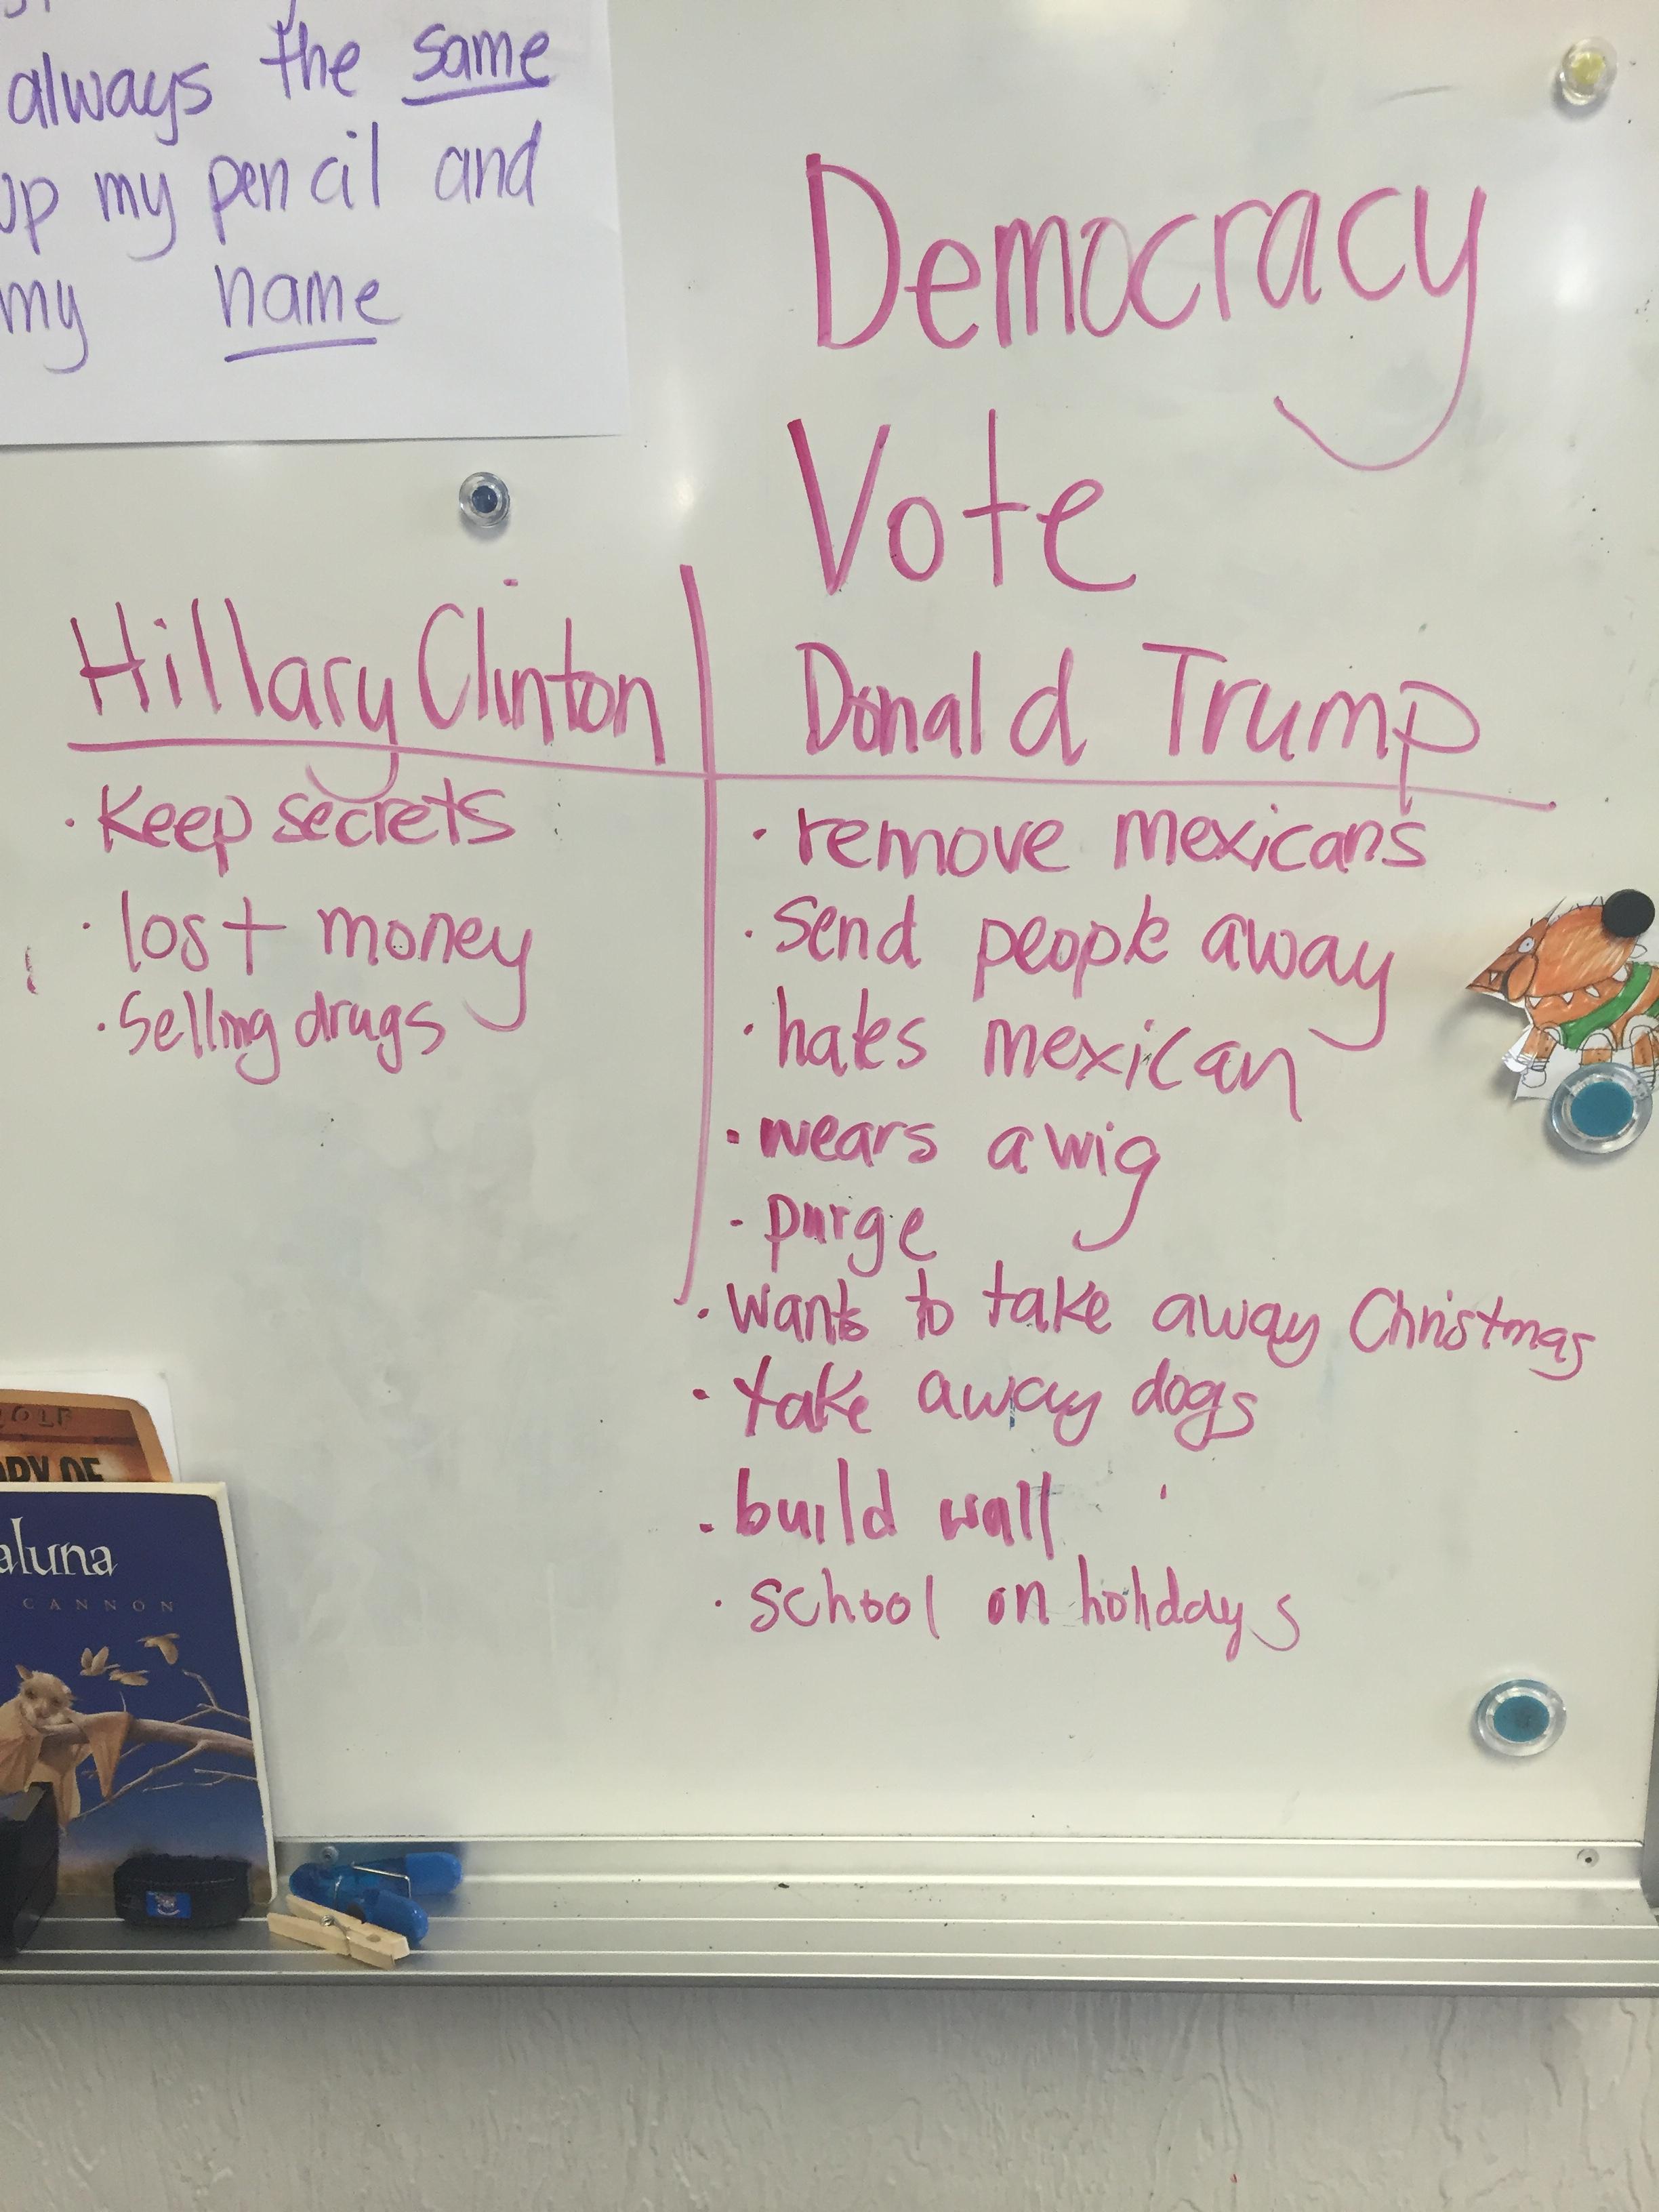 always the same
up my pencil and
my name
Democracy
Vote
Hillary Clinton
· Keep secrets
· lost money
· Selling drugs
Donald Trump
· remove mexicans
· send people away
· hates mexican
· wears a wig
- purge
· wants to take away Christmas
· take away dogs
· build wall
· school on holidays
OLF
RY OF
aluna
CANNON